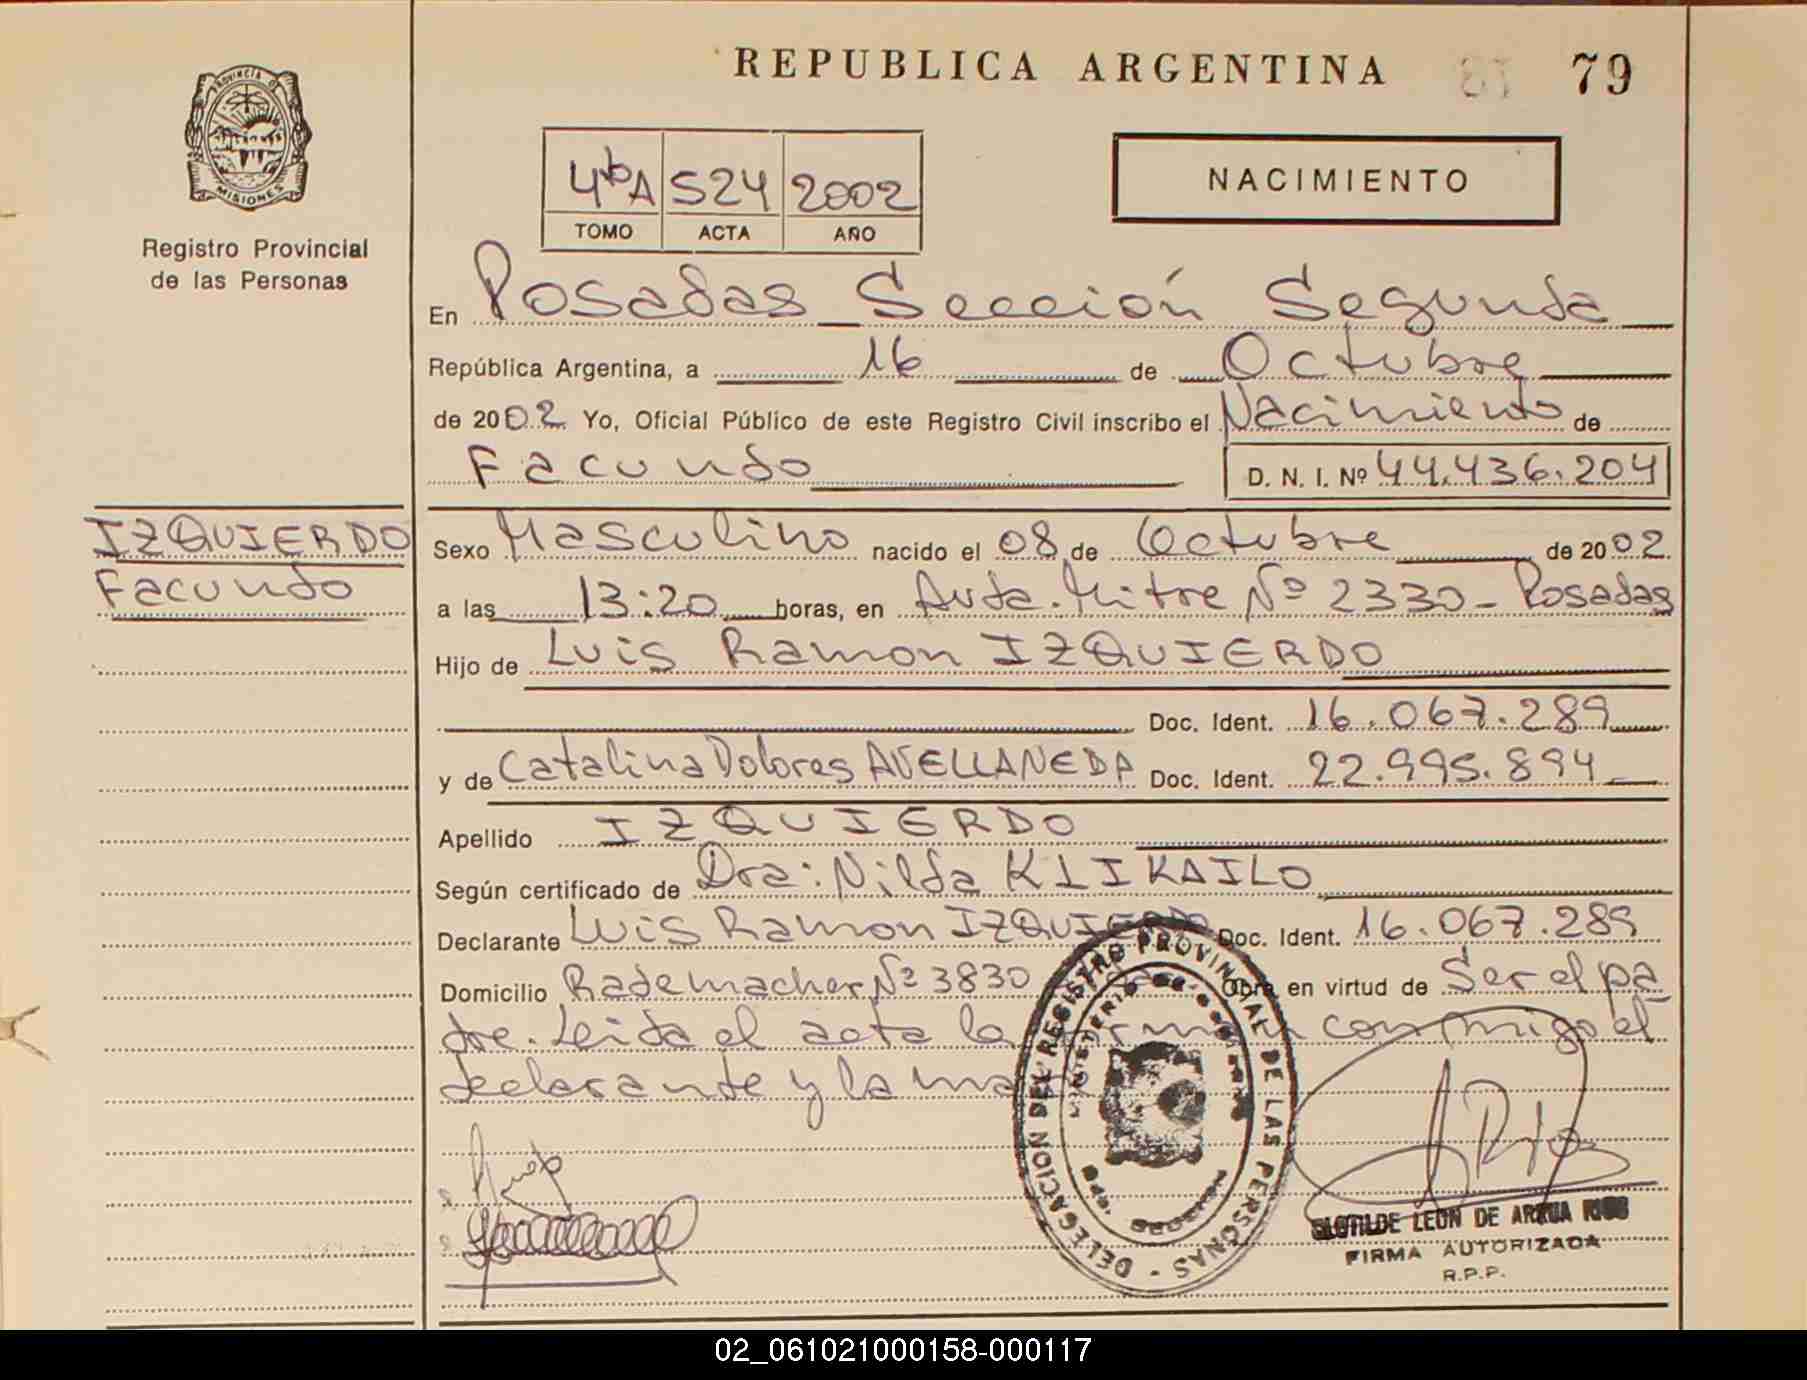 REPUBLICA ARGENTINA 79
PROVINCIA DE MISIONES
Registro Provincial
de las Personas
NACIMIENTO
4ºA 524 2002
TOMO ACTA AÑO
En Posadas Sección Segunda
República Argentina, a 16 de Octubre
de 2002 Yo, Oficial Público de este Registro Civil inscribo el Nacimiento de
Facundo D. N. I. Nº 44.436.204
IZQUIERDO
Facundo
Sexo Masculino nacido el 08 de Octubre de 2002
a las 13:20 horas, en Avda. Mitre Nº 2330 - Posadas
Hijo de Luis Ramon IZQUIERDO
Doc. Ident. 16.067.289
y de Catalina Dolores AVELLANEDA Doc. Ident. 22.995.894
Apellido IZQUIERDO
Según certificado de Dra: Nilda KLIKAILO
Declarante Luis Ramon IZQUIERDO Doc. Ident. 16.067.289
Domicilio Rademacher Nº 3830 Obra en virtud de Ser el pa
dre. Leida el acta la firman conmigo el
declarante y la madre
DELEGACION DEL REGISTRO PROVINCIAL DE LAS PERSONAS
MINISTERIO DE GOBIERNO
CLOTILDE LEON DE ARRUA RIOS
FIRMA AUTORIZADA
R.P.P.
02_061021000158-000117